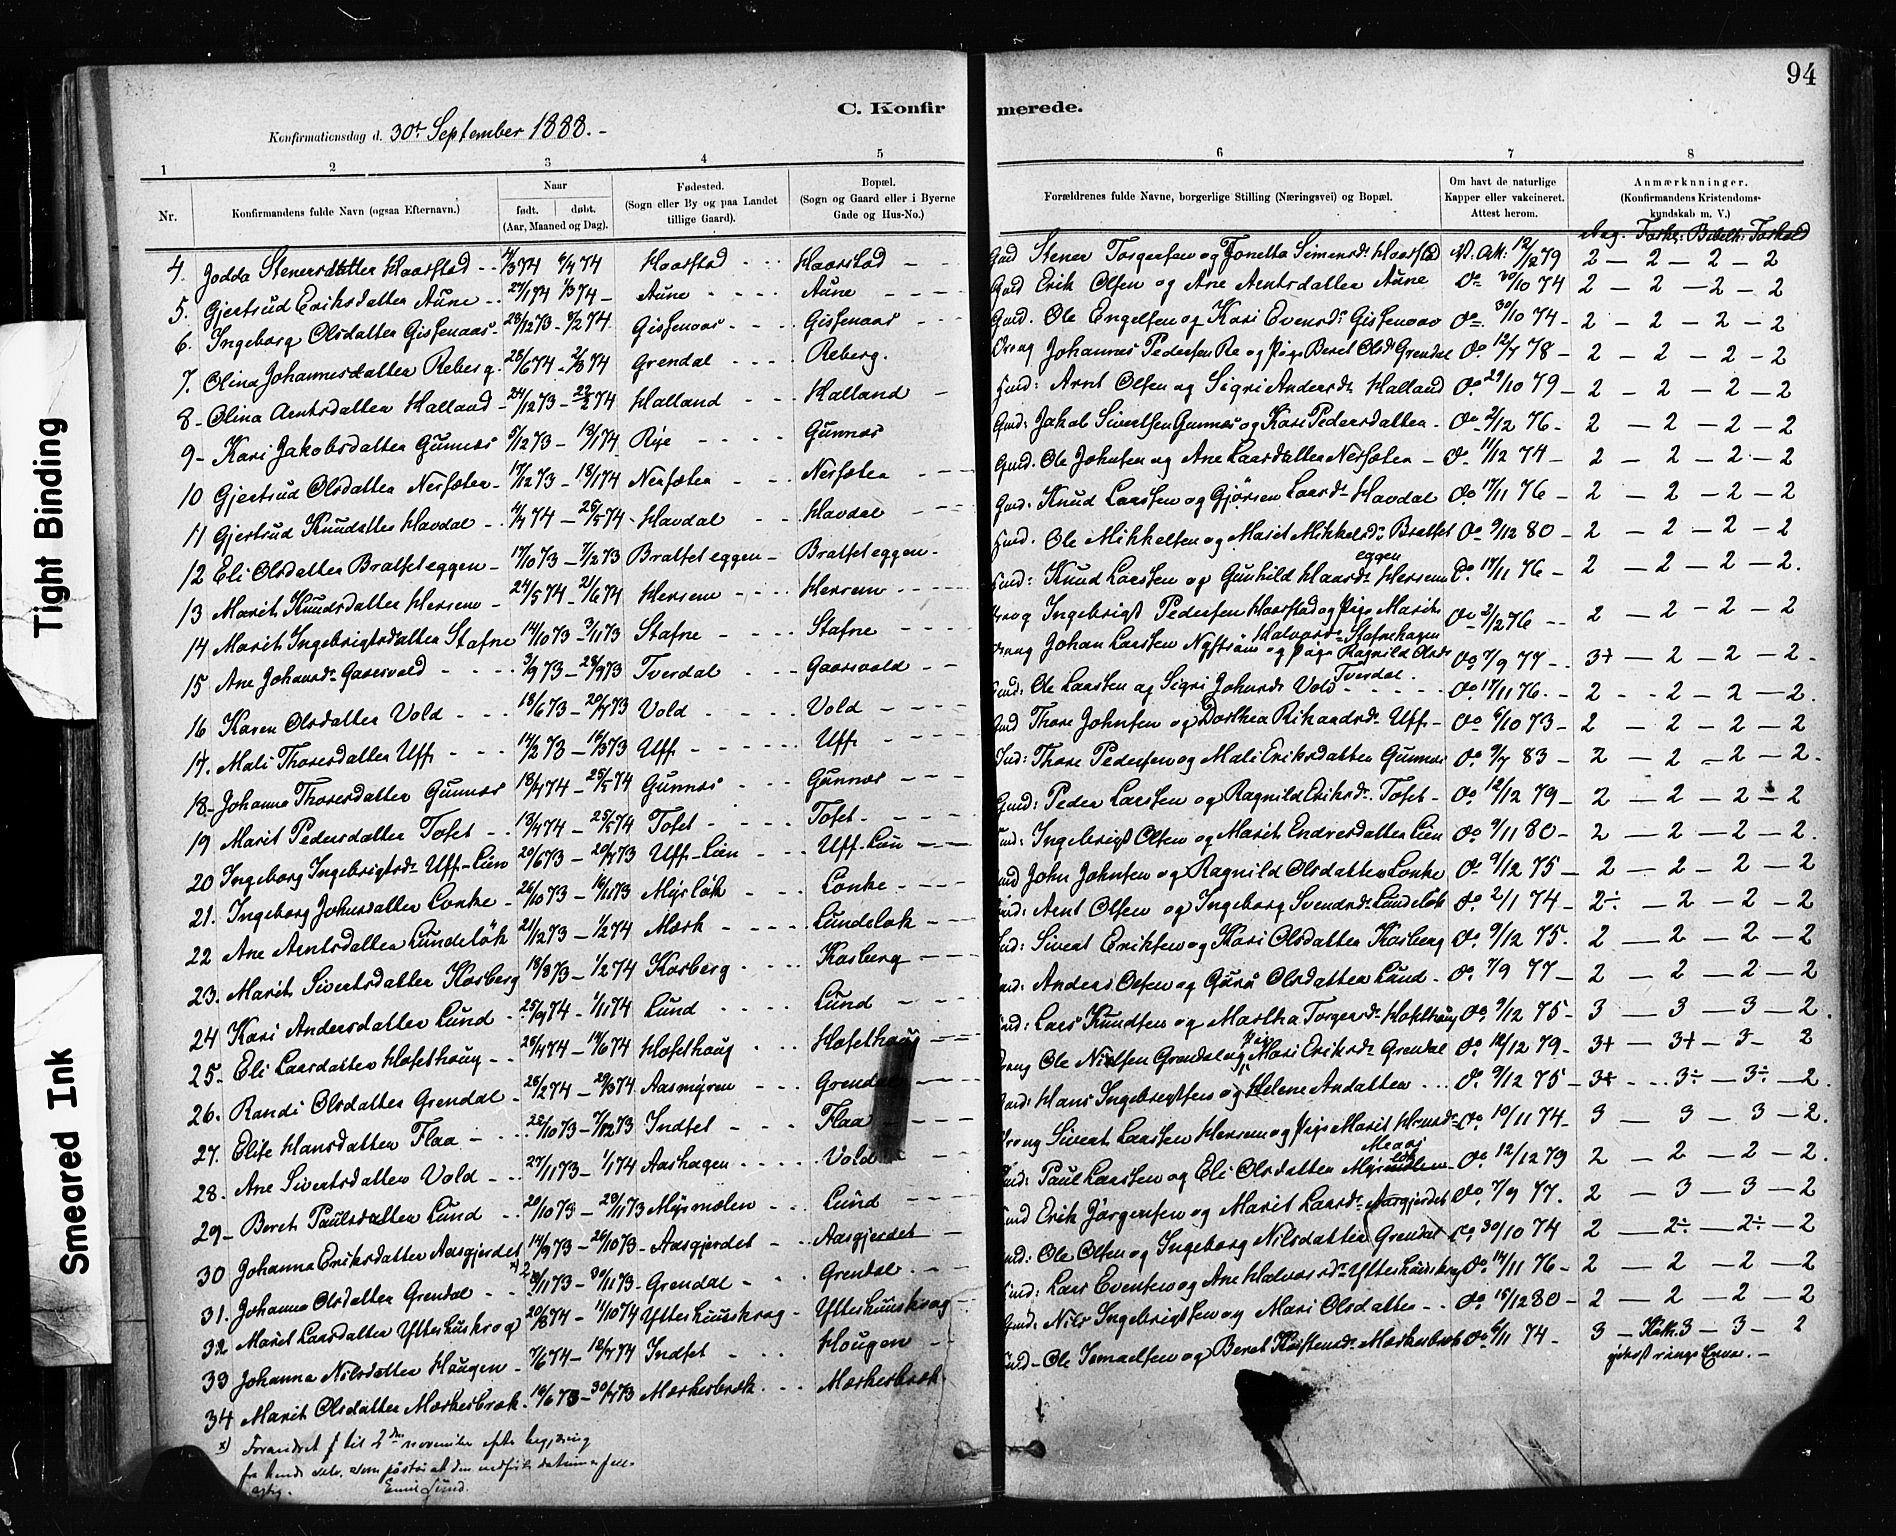 94
C. Konfirmerede.
Konfirmationsdag d. 30t September 1888. -
1 2 3 4 5 6 7 8
Nr. Konfirmandens fulde Navn (ogsaa Efternavn.) Naar født. døbt. (Aar, Maaned og Dag). Fødested. (Sogn eller By og paa Landet tillige Gaard). Bopæl. (Sogn og Gaard eller i Byerne Gade og Hus-No.) Forældrenes fulde Navne, borgerlige Stilling (Næringsvei) og Bopæl. Om havt de naturlige Kapper eller vakcineret. Attest herom. Anmærkninger. (Konfirmandens Kristendomskundskab m. V.)
4. Jodda Stenersdatter Haarstad 74 6/4 74 Haarstad Haarstad Gmd Stener Torgersen og Jonetta Simensd: Haarstad V. Att: 12/2 79 2 - 2 - 2 - 2
5. Gjertrud Eriksdatter Aune 27/1 74 1/3 74 Aune Aune Gmd Erik Olsen og Ane Arntsdatter Aune Do 30/10 74 2 - 2 - 2 - 2
6. Ingeborg Olsdatter Gisfenaas 23/12 73 - 8/2 74 Gisfenaas Gisfenaas Gmd. Ole Engelsen og Kari Evensd: Gisfenaas Do 30/10 74 - 2 - 2 - 2 - 2
7. Olina Johannesdatter Reberg 28/6 74 - 2/8 74 Grendal Reberg. Ureng Johannes Pedersen Re og Pige Beret Olsd Grendal Do 12/7 78 - 2 - 2 - 2 - 2
8 - Olina Arntsdatter Halland 24/12 73 - 22/2 74 Halland Halland Hmd: Arnt Olsen og Sigri Andersd: Halland Do 29/10 79 - 2 - 2 - 2 - 2
9 - Kari Jakobsdatter Gunnes 5/12 73 - 13/1 74 Rye Gunnes Gmd: Jakob Sivertsen Gunnes og Kari Pedersdatter - Do 2/12 76 - 2 - 2 - 2 - 2
10 Gjertrud Olsdatter Nersæter 17/12 73 - 18/1 74 Nersæter Nersæter Gmd. Ole Johnsen og Ane Larsdatter Nersæter - Do 11/12 74 - 2 - 2 - 2 - 2
11 Gjertrud Knudsdtter Havdal 4/4 74 - 25/5 74 Havdal Havdal Gmd: Knud Larssen og Gjørsen Larsd: Havdal Do 17/11 76 - 2 - 2 - 2 - 2
12 Eli Olsdatter Bratseteggen 17/10 73 - 7/12 73 Bratseteggen Bratseteggen. Hmd. Ole Mikkelsen og Marit Mikkelsd: Bratset eggen Do 9/12 80 - 2 - 2 - 2 - 2
13 Marit Knudsdatter Herrem 24/5 74 - 21/6 74 Herrem Herrem Gmd: Knud Larssen og Gunhild Haarsd: Herrem Do 17/11 76 - 2 - 2 - 2 - 2.
14 Marit Ingebrigtsdatter Stafne 14/10 73 - 3/11 73 Stafne Stafne Ureng Ingebrigt Pedersen Haarstad og Pige Marit Halvorsd: Stafnehagen Do 2/12 76 - 2 - 2 - 2 - 2
15 Ane Johansd: Gaasvold 3/9 73 - 28/9 73 Tverdal Gaasvold Ureng Johan Larssen Nystrøm og Pige Ragnild Olsd: Tverdal Do 7/9 77 - 3+ - 2 - 2 - 2.
16 Karen Olsdatter Vold 18/6 73 - 20/7 73 Vold Vold Gmd: Ole Larssen og Sigri Johnsd: Vold Do 17/11 76 - 2 - 2 - 2 - 2
17. Mali Thoresdatter Uff 14/2 73 - 16/3 73 Uff Uff Gmd Thore Johnsen og Dorthea Rikardsd: Uff - Do 6/10 73 - 2 - 2 - 2 - 2
18 - Johanna Thoresdatter Gunnes 18/4 74 - 25/5 74 Gunnes Gunnes Ind: Thore Pedersen og Mali Eriksdatter Gunnes Do 9/7 83 - 2 - 2 - 2 - 2.
19 Marit Pedersdatter Tofet 13/4 74 - 25/5 74 Tofet Tofet Gmd: Peder Larssen og Ragnild Eriksd: Tofet - Do 12/12 79 - 2 - 2 - 2 - 2
20 Ingeborg Ingebrigtsd: Uff-Lien 20/6 73 - 20/7 73 Uff-Lien Uff-Lien Hmd: Ingebrigt Olsen og Marit Endresdatter Lien Do 9/11 80 - 2 - 2 - 2 - 2.
21. Ingeborg Johnsdatter Lonke 26/10 73 - 16/11 73 Myrløk Lonke Gmd John Johnsen og Ragnild Olsdatter Lonke Do 9/12 75 - 2 - 2 - 2 - 2
22 Ane Arntsdatter Lundeløk 21/12 73 - 1/2 74 Mærk Lundeløk Hmd: Arnt Olsen og Ingeborg Svendsd: Lundeløk Do 2/11 74 - 2÷ - 2 - 2 - 2
23. Marit Sivertsdatter Kosberg 18/8 73 - 1/2 74 Kosberg Kosberg Ind: Sivert Eriksen og Kari Olsdatter Kosberg Do 9/12 75. 2 - 2 - 2 - 2
24 Kari Andersdatter Lund 25/9 74 - 1/11 74 Lund Lund Gmd: Anders Olsen og Guru Olsdatter Lund - Do 7/9 77 - 2 - 2 - 2 - 2
25 - Eli Larsdatter Hofethoug 26/4 74 - 14/6 74 Hofethoug Hofethoug Gmd: Lars Knudsen og Martha Torgersd: Hofethoug Do 9/12 75 - 3 - 3 - 3 - 2.
26. Randi Olsdatter Grendal 25/2 74 - 29/3 74 Aasmyren Grendal Ureng Ole Nielsen Grendal og Pige Mari Eriksd: Grendal Do 14/12 79 - 3+ - 3+ - 3 - 2
27. Elise Hansdatter Flaa 22/10 73 - 7/12 73 Indset Flaa Gmd: Hans Ingebrigtsen og Helene Andatter Do 9/12 75 - 3+ - 3÷ - 3÷ - 2.
28. Ane Sivertsdatter Vold 27/11 73 - 1/1 74 Aashagen Vold Ureng Sivert Larssen Herrem og Pige Marit Do 10/11 74 - 3 - 3 - 3 - 2.
29 - Beret Paulsdatter Lund 20/10 73 - 29/11 73 Myrmolen Lund Hmd: Paul Larssen og Eli Olsdatter Do 12/12 79 2 - 2 - 2 - 2.
30 Johanna Eriksdatter Aasgjerdet 14/9 73 - 26/10 73 Aasgjerdet Aasgjerdet Hmd Erik Jørgensen og Marit Larsd: Aasgjerdet Do 7/9 77. 2 - 3 - 3 - 2
31. Johanna Olsdatter Grendal x) 2/11 73 - 30/11 73 Grendal Grendal Gmd: Ole Olsen og Ingeborg Nilsdatter Grendal Do 30/10 74 2 - 2÷ - 2÷ - 2
32 Marit Larsdatter Ytterhuskrog 20/8 74 - 11/10 74 Ytterhuuskrog Ytterhuuskrog Hmd: Lars Evensen og Ane Halvorsd: Ytterhuuskrog Do 14/11 76 - 2 - 2 - 2 - 2
33 Johanna Nilsdatter Haugen 7/6 74 - 12/7 74 Indset Hougen Gmd: Nils Ingebrigtsen og Mari Olsdatter Do 15/12 80 - 2 - 2 - 2 - 2
34 Marit Olsdatter Mærkesbræk 16/6 73 - 30/7 73 Mærkesbræk Mærkesbræk Hmd - Ole Ismaelsen og Beret Kristensd: Mærkesbræk Do 6/11 74 - 3 - Kat. 3 - 3 - 2
x) Forandret f til 2den november efter begjæring
fra hende selv, som påstår at den anførte datum er feil-
agtig. Emil Lund.
Tight Binding
Smeared Ink